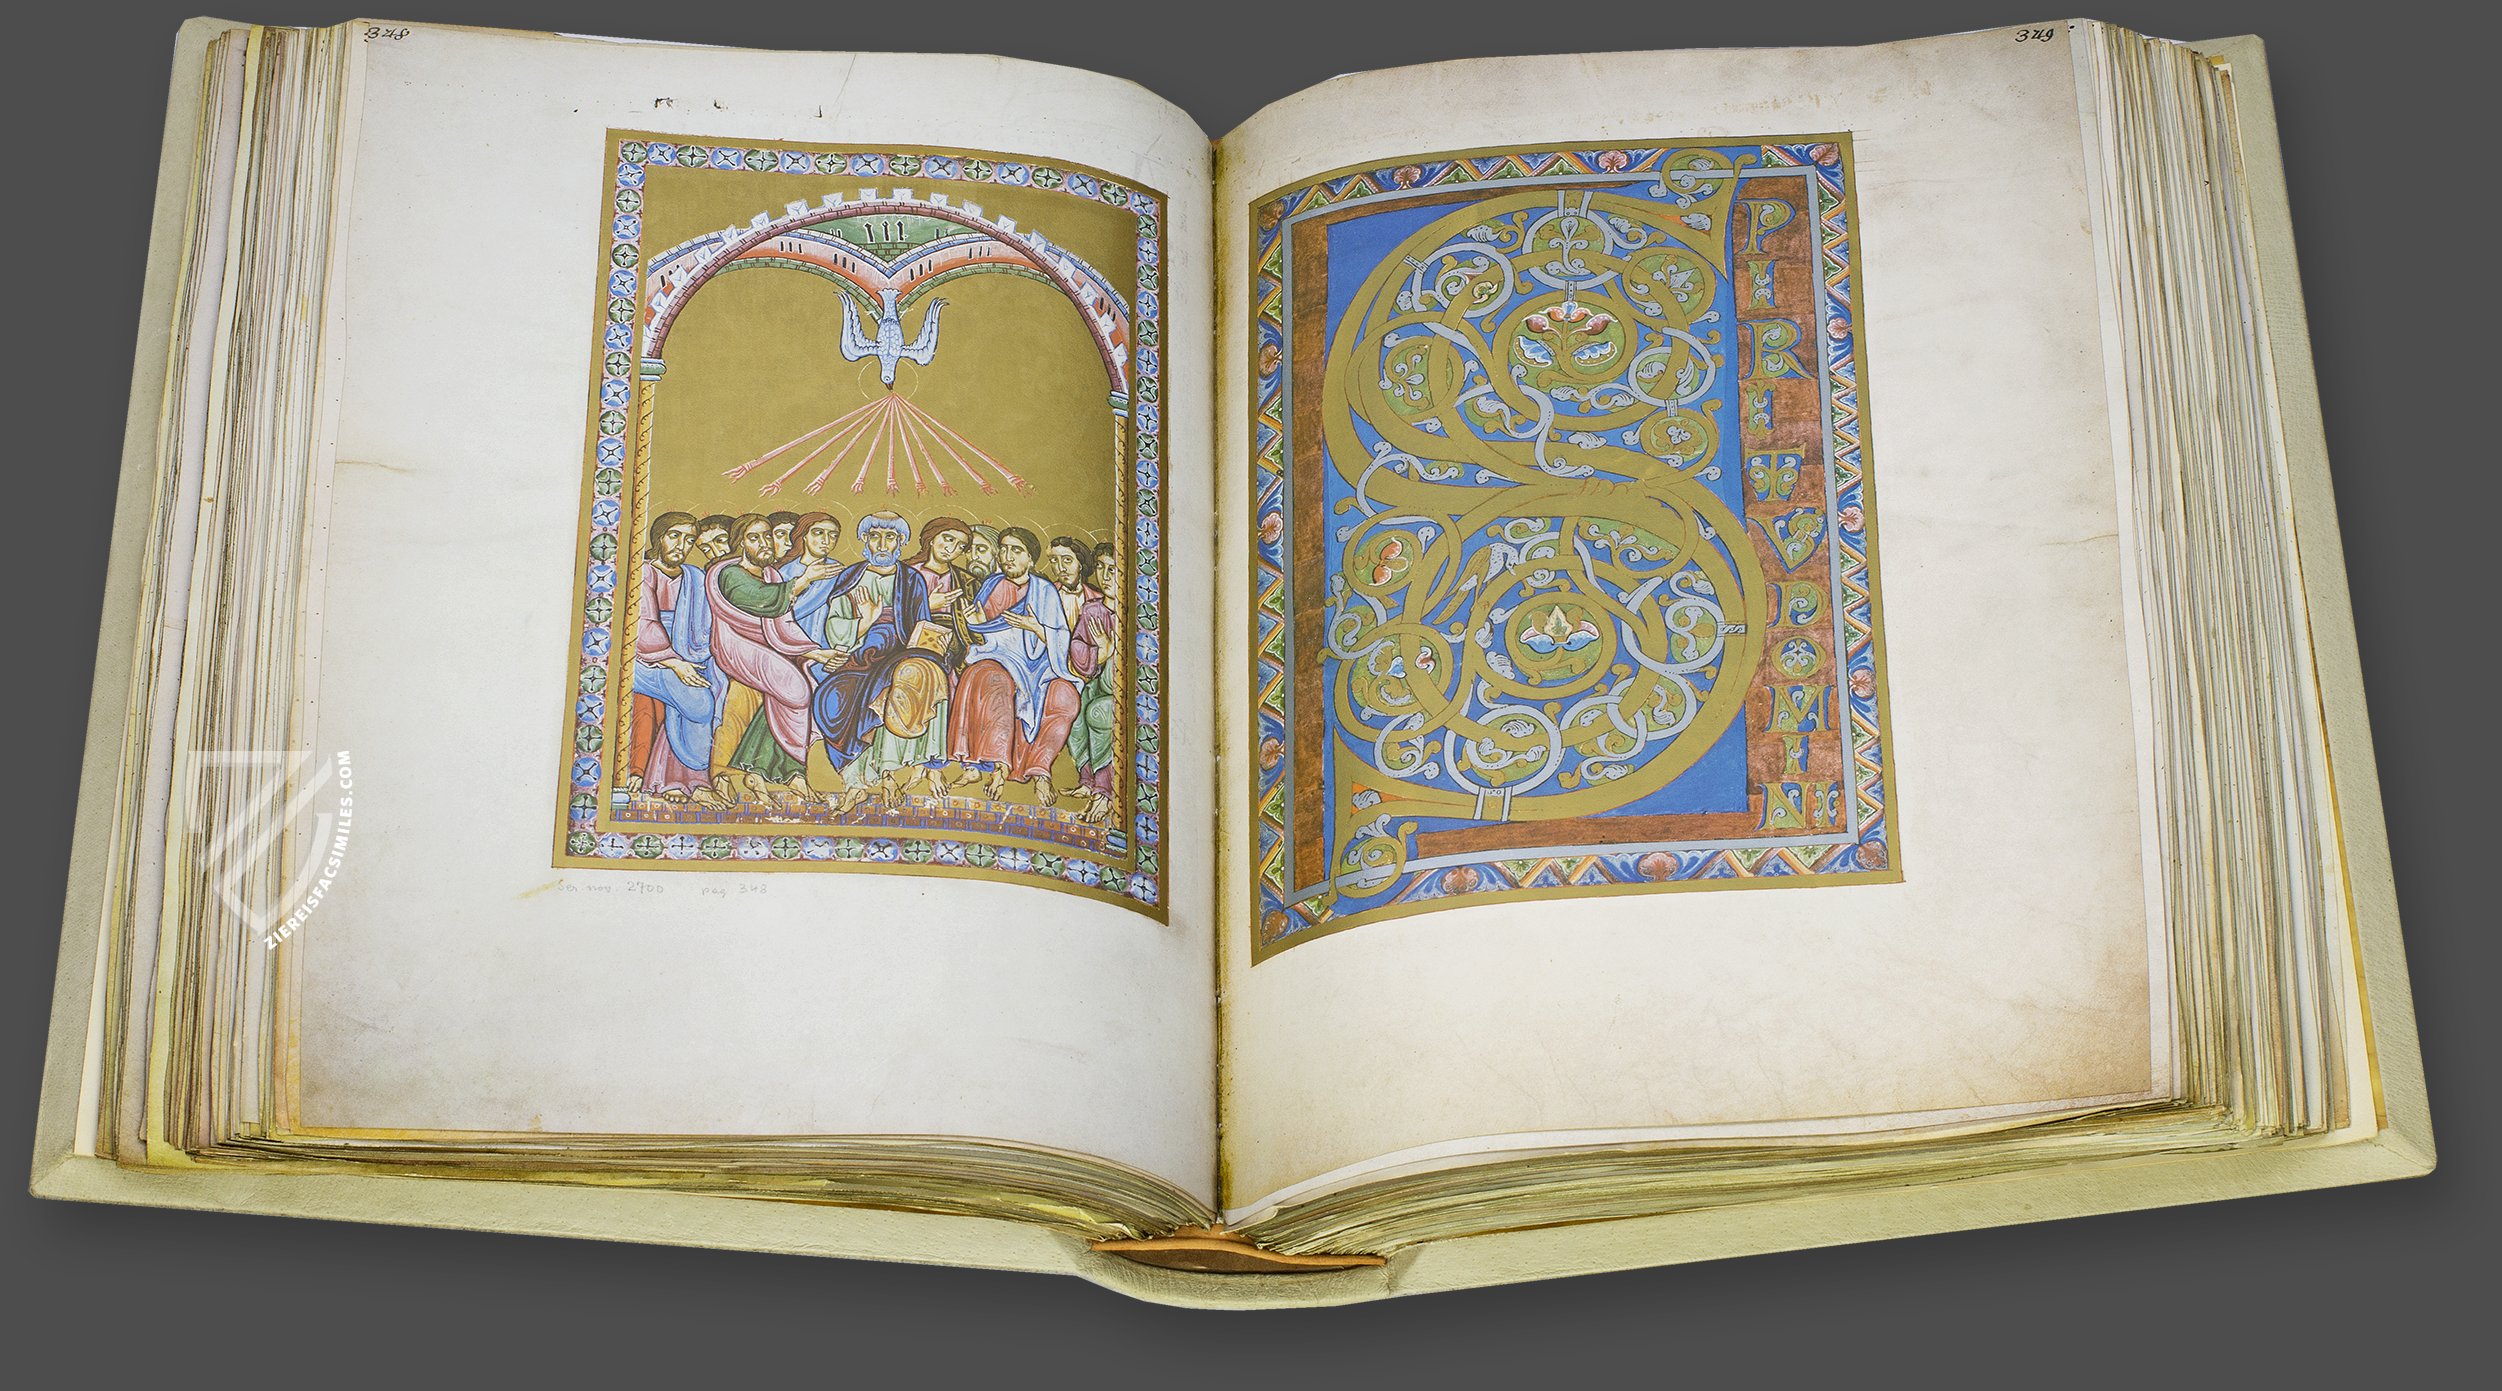 348
Ser. nov. 2700 pag. 348
349
S
PIRITV DOMINI
ZIEREISFACSIMILES.COM